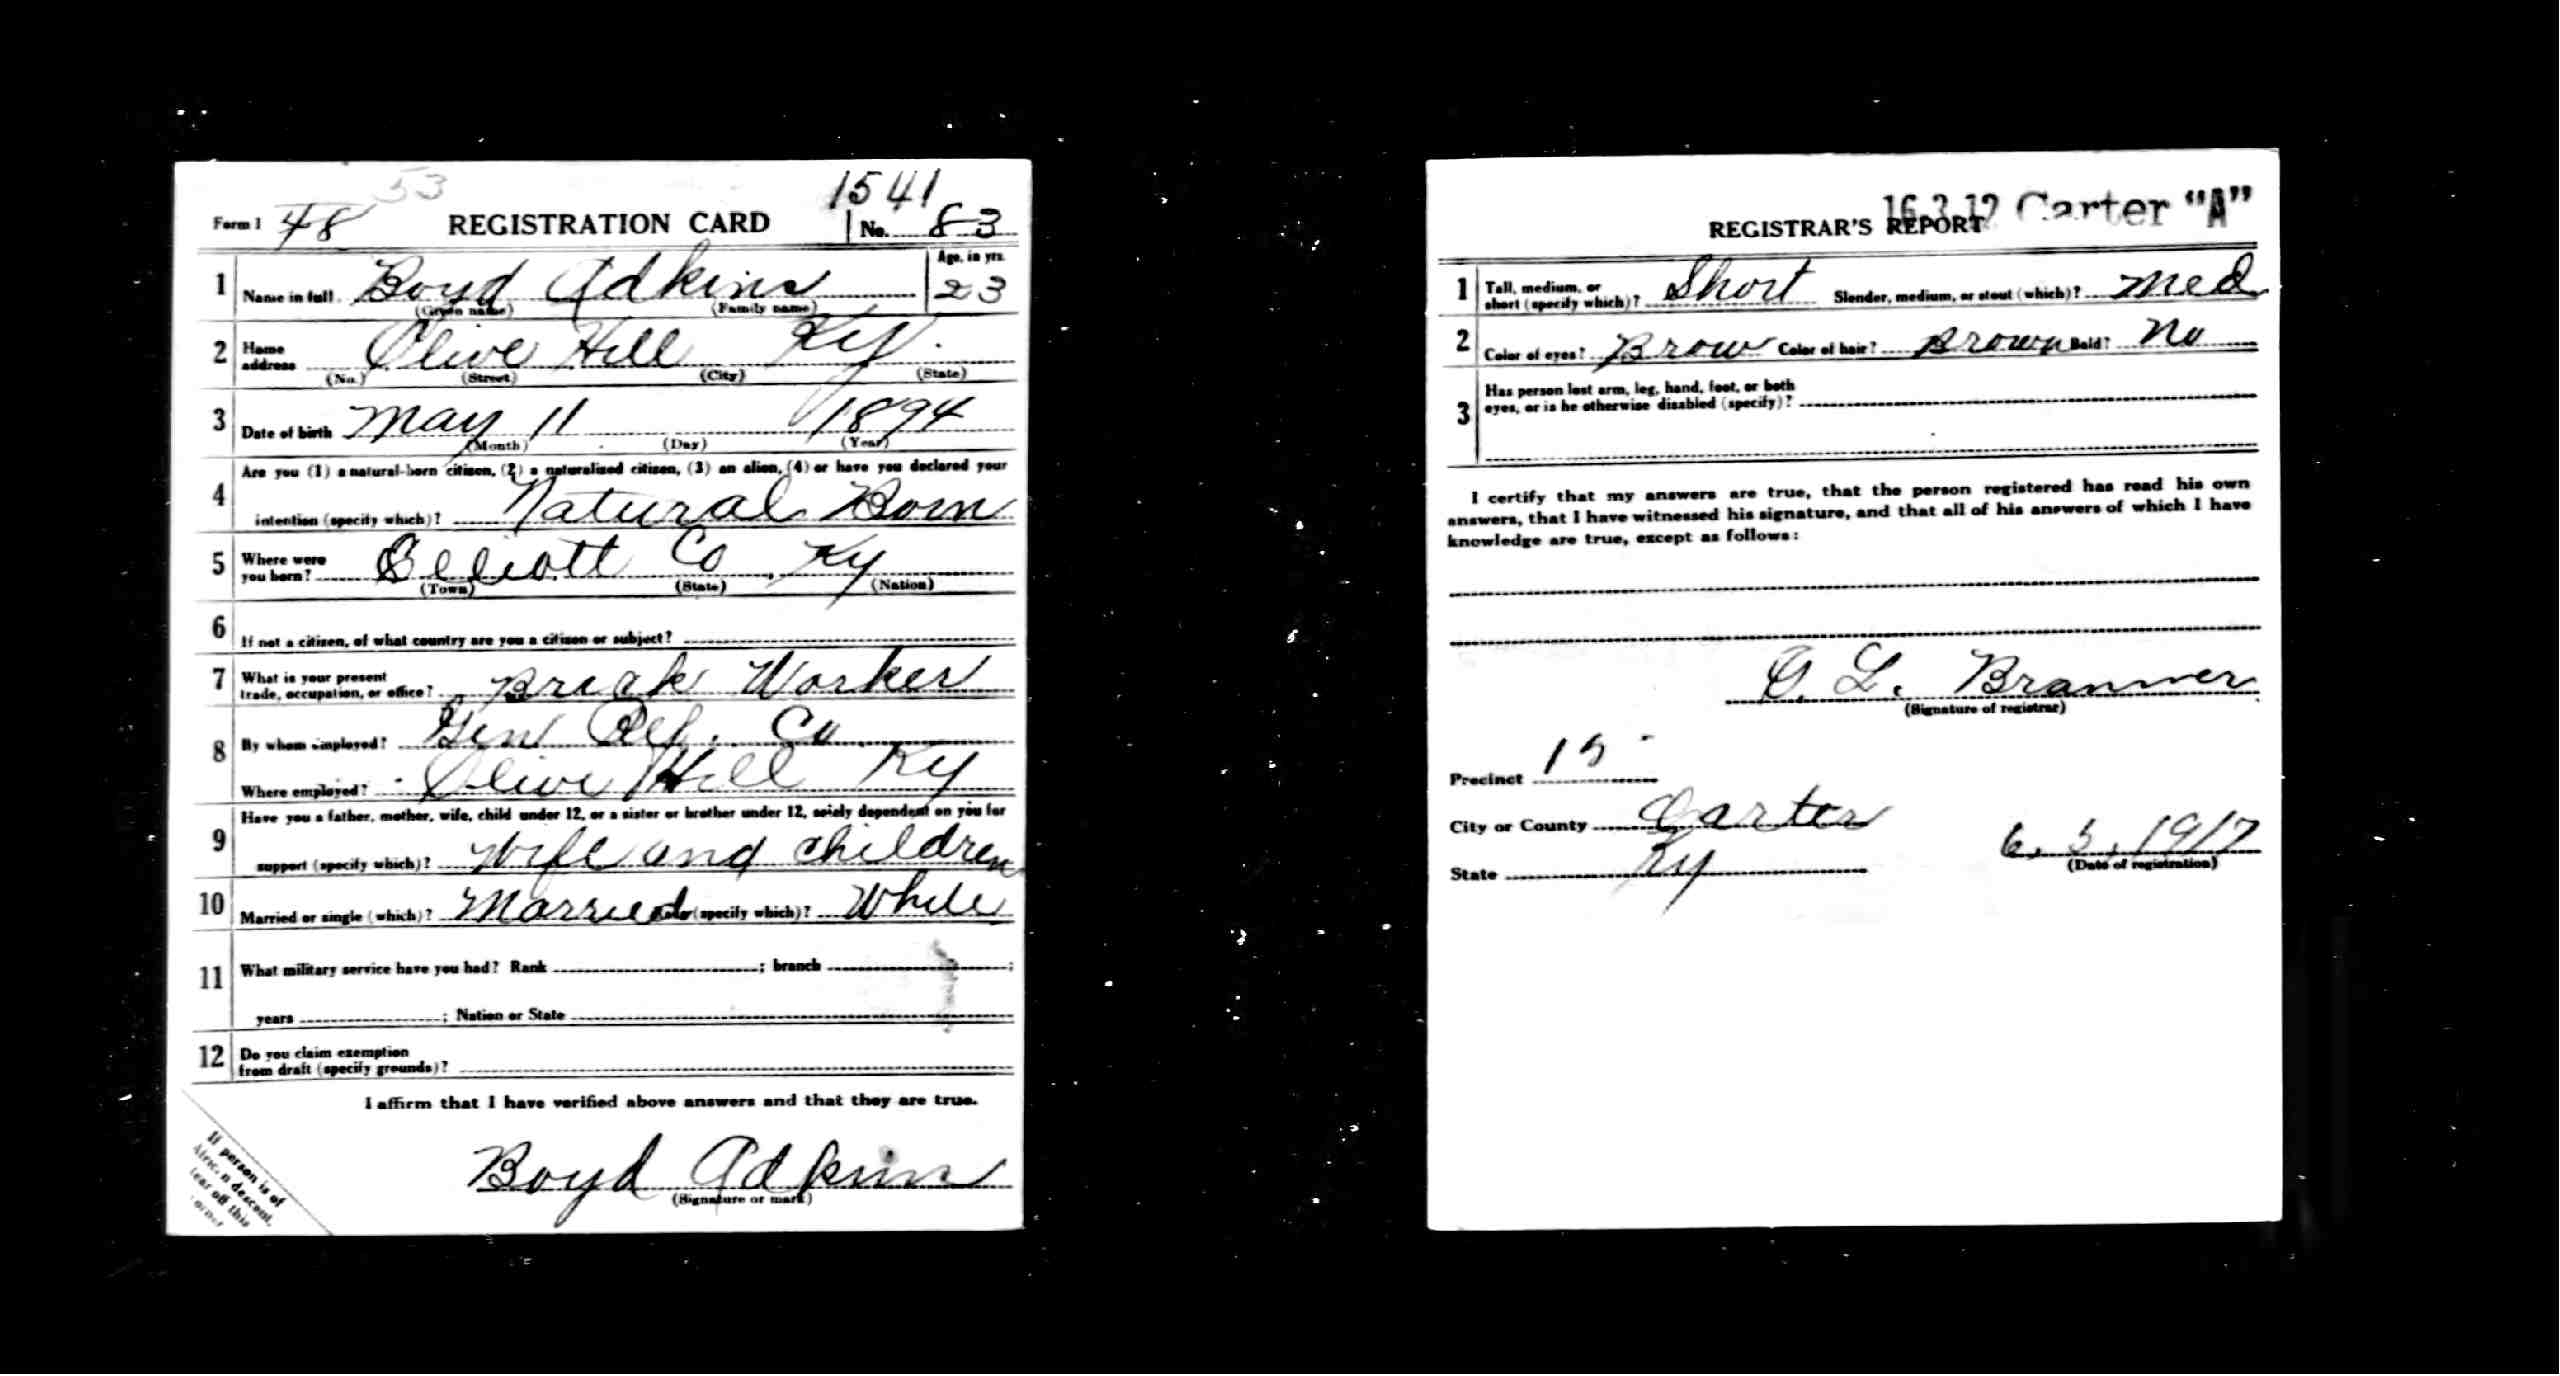 53
1541
Form 1 48 REGISTRATION CARD No. 83
1 Name in full Boyd Adkins Age, in yrs. 23
(Given name) (Family name)
2 Home address Olive Hill Ky.
(No.) (Street) (City) (State)
3 Date of birth May 11 1894
(Month) (Day) (Year)
Are you (1) a natural-born citizen, (2) a naturalized citizen, (3) an alien, (4) or have you declared your
4 intention (specify which)? Natural Born
5 Where were you born? Elliott Co Ky
(Town) (State) (Nation)
6 If not a citizen, of what country are you a citizen or subject?
7 What is your present trade, occupation, or office? Brick Worker
8 By whom employed? Gen Ref. Co
Where employed? Olive Hill Ky
Have you a father, mother, wife, child under 12, or a sister or brother under 12, solely dependent on you for
9 support (specify which)? Wife and children
10 Married or single (which)? Married (specify which)? White
11 What military service have you had? Rank ; branch ;
years ; Nation or State
12 Do you claim exemption
from draft (specify grounds)?
I affirm that I have verified above answers and that they are true.
Boyd Adkins
(Signature or mark)
If person is of
descent,
tear off this
corner
16 3 12 Carter "A"
REGISTRAR'S REPORT
1 Tall, medium, or
short (specify which)? Short Slender, medium, or stout (which)? Med
2 Color of eyes? Brow Color of hair? Brown Bald? No
3 Has person lost arm, leg, hand, foot, or both
eyes, or is he otherwise disabled (specify)?
I certify that my answers are true, that the person registered has read his own
answers, that I have witnessed his signature, and that all of his answers of which I have
knowledge are true, except as follows:
L. Brammer
(Signature of registrar)
Precinct 15
City or County Carter
6. 5. 1917
State Ky
(Date of registration)